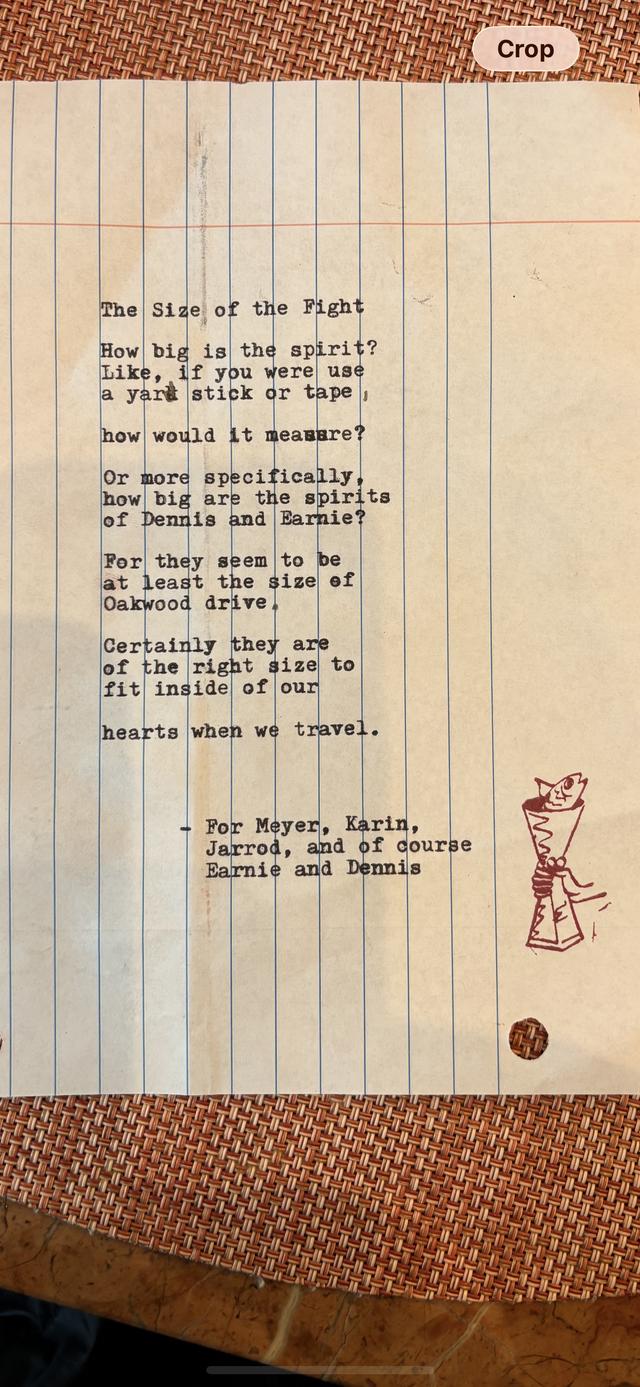 Crop
The Size of the Fight
How big is the spirit?
Like, if you were use
a yard stick or tape,
how would it measure?
Or more specifically,
how big are the spirits
of Dennis and Earnie?
For they seem to be
at least the size of
Oakwood drive.
Certainly they are
of the right size to
fit inside of our
hearts when we travel.
- For Meyer, Karin,
Jarrod, and of course
Earnie and Dennis